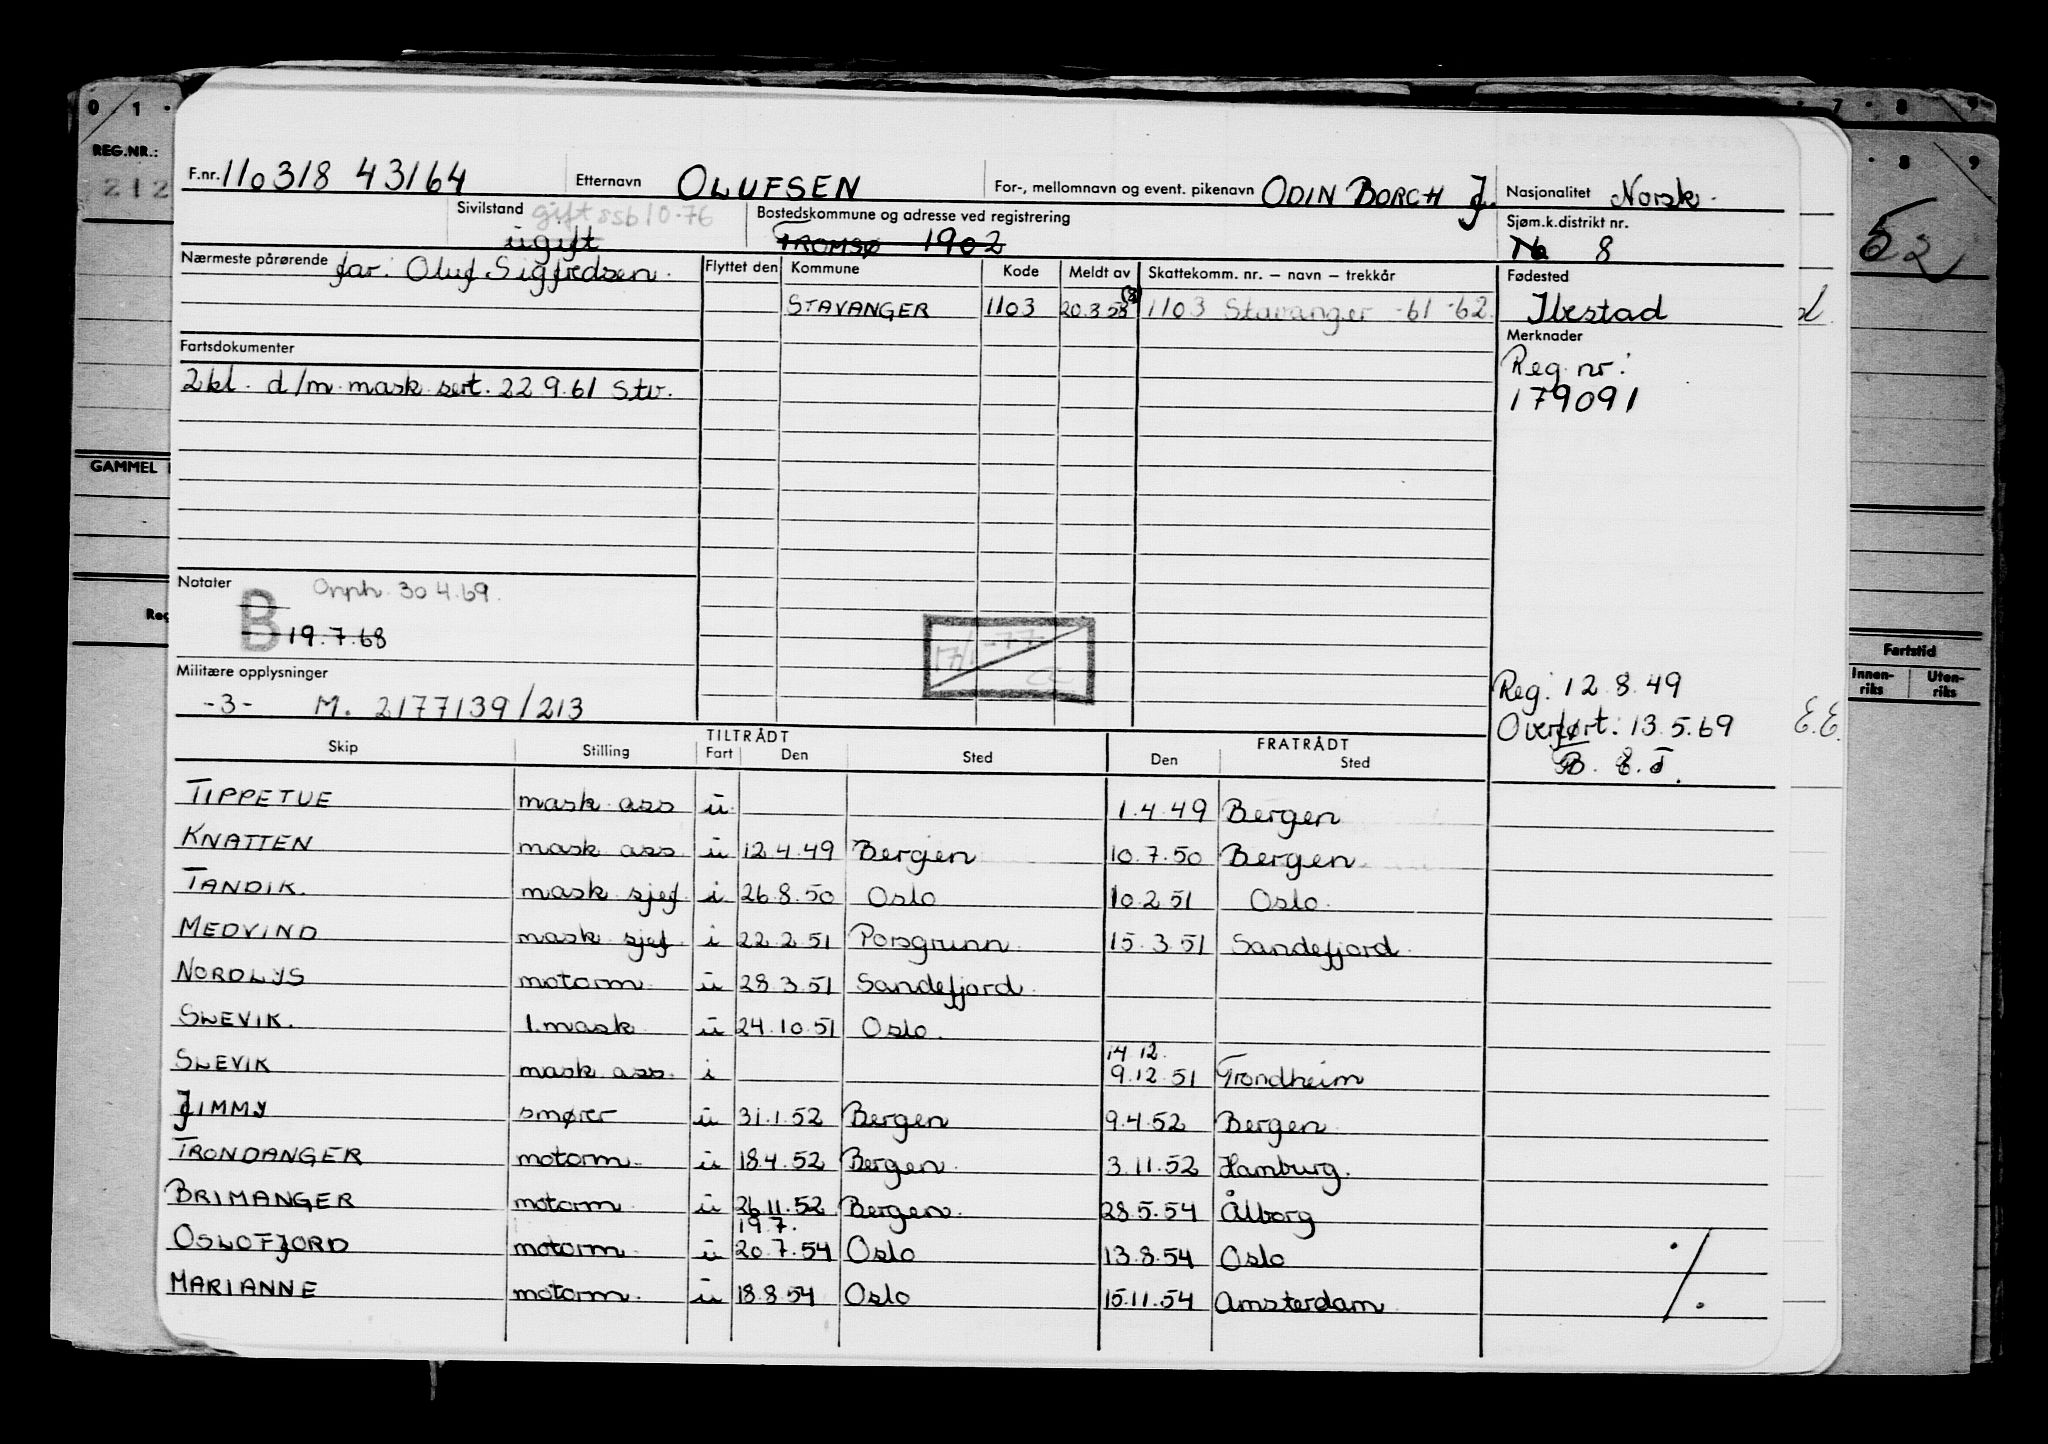 0 1 · 7 · 8 · 9
REG.NR.: · 8 9
212
F.nr. 110318 43164 Etternavn OLUFSEN For-, mellomnavn og event. pikenavn ODIN BORCH J. Nasjonalitet Norsk.
Sivilstand gift ssb 10-76 Bostedskommune og adresse ved registrering Sjøm.k.distrikt nr.
ugift TROMSØ 1902 8 52
Nærmeste pårørende far: Oluf Sigfredsen. Flyttet den Kommune Kode Meldt av Skattekomm. nr. – navn – trekkår Fødested
STAVANGER 1103 20.3.58 (8) 1103 Stavanger -61 -62 Ibestad d.
Fartsdokumenter Merknader
2kl. d/m. mask. sert. 22 9.61 Stv. Reg. nr:
179091
GAMMEL
Notater Omph. 30 4.69.
B 19.7.68 17/1-77
Reg Fartstid
Innen-riks Uten-riks
Militære opplysninger Reg: 12.8.49
-3- M. 2177139/213 Overført: 13.5.69 E.E.
TILTRÅDT FRATRÅDT
Skip Stilling Fart Den Sted Den Sted
TIPPETUE mask ass u 1.4.49 Bergen
KNATTEN mask ass u 12.4.49 Bergen 10.7.50 Bergen
TANDIK. mask sjef i 26.8.50 Oslo 10.2.51 Oslo.
MEDVIND mask sjef i 22.2.51 Porsgrunn 15.3.51 Sandefjord.
NORDLYS motorm u 28.3.51 Sandefjord.
SLEVIK. 1.mask u 24.10.51 Oslo.
14.12.
SLEVIK mask ass. i 9.12.51 Trondheim
JIMMY smører u 31.1.52 Bergen 9.4.52 Bergen
TRONDANGER motorm. u 18.4.52 Bergen. 3.11.52 Hamburg.
BRIMANGER motorm u 26.11.52 Bergen. 28.5.54 Ålborg
19.7.
OSLOFJORD motorm u 20.7.54 Oslo 13.8.54 Oslo
MARIANNE motorm. u 18.8.54 Oslo 15.11.54 Amsterdam ./.